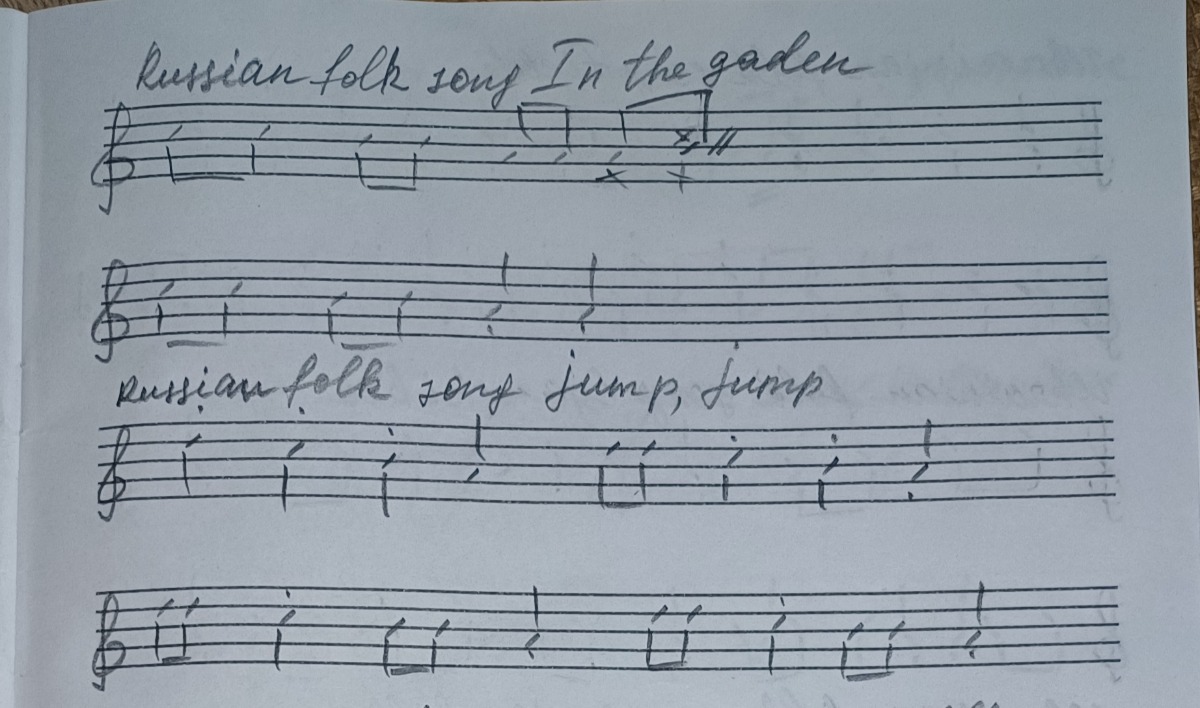 Russian folk song In the gaden
Russian folk song jump, jump